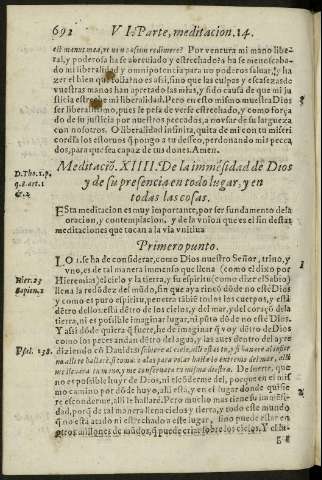 692 VI. Parte, meditacion. 14.
est manus mea, vt non possim redimere? Por ventura mi mano libe-
ral, y poderosa ha se abreuiado y estrechado? ha se menoscaba-
do mi liberalidad y omnipotencia para no poderos saluar, y ha
zer el bien que soliá? no es assi, sino que las culpas y escasezas de
vuestras manos han apretado las mias, y sido causa de que mi ju
sticia estreche mi liberalidad. Pero en esto mismo muestra Dios
ser liberalissimo, pues le pesa de verse estrechado, y como força
do de su justicia por nuestros peccados, a no vsar de su largueza
con nosotros. O liberalidad infinita, quita de mi con tu miseri
cordia los estoruos q̃ pongo a tu desseo, perdonando mis pecca
dos, para que sea capaz de tus dones. Amen.
Meditaciõ. XIIII. De la immẽsidad de Dios
D. Tho. 1. p.
q. 8. art. 1
y de su presencia en todo lugar, y en
todas las cosas.
Esta meditacion es muy importante, por ser fundamento de la
oracion, y contemplacion, y de la vnion que es el fin de estas
meditaciones que tocan a la via vnitiua
Primero punto.
LO 1. se ha de considerar, como Dios nuestro Señor, trino, y
vno, es de tal manera immenso que llena (como el dixo por
Hier. 23
Hieremias) el cielo y la tierra, y su espiritu (como dize el Sabio)
Sapien. 1
llena la redõdez del mũdo, sin que aya rincõ dõde no estè Dios
y como es puro espiritu, penetra tãbiẽ todos los cuerpos, y està
dẽtro dellos: està dẽtro de los cielos, y del mar, y del coraçõ de la
tierra, ni es posible imaginar lugar, ni pũto dõde no este Dios.
Y assi dõde quiera q̃ fuere, he de imaginar q̃ voy dẽtro de Dios
como los peces andan dẽtro del agua, y las aues dentro del ayre
Psal. 138.
diziendo cõ Dauid: si subiere al cielo, alli estas tu, y si baxare al infier
no alli te hallarè, si tomare alas para volar hasta lo extremo del mar, alli
me lleuara tu mano, y me conseruara tu misma diestra. De suerte, que
no es posible huyr de Dios, ni escõderme del, porque en el mis
mo camino por dõde huyo, alli està, y en el lugar donde quisie
re esconderme, alli le hallarè. Pero mucho mas tiene su immẽsi-
dad, porq̃ de tal manera llena cielos y tierra, y todo este mundo
q̃ no està atado ni estrechado a este lugar, sino puede estar en
otros millones de mũdos, q̃ puede criar sobre los cielos. Y el lu-